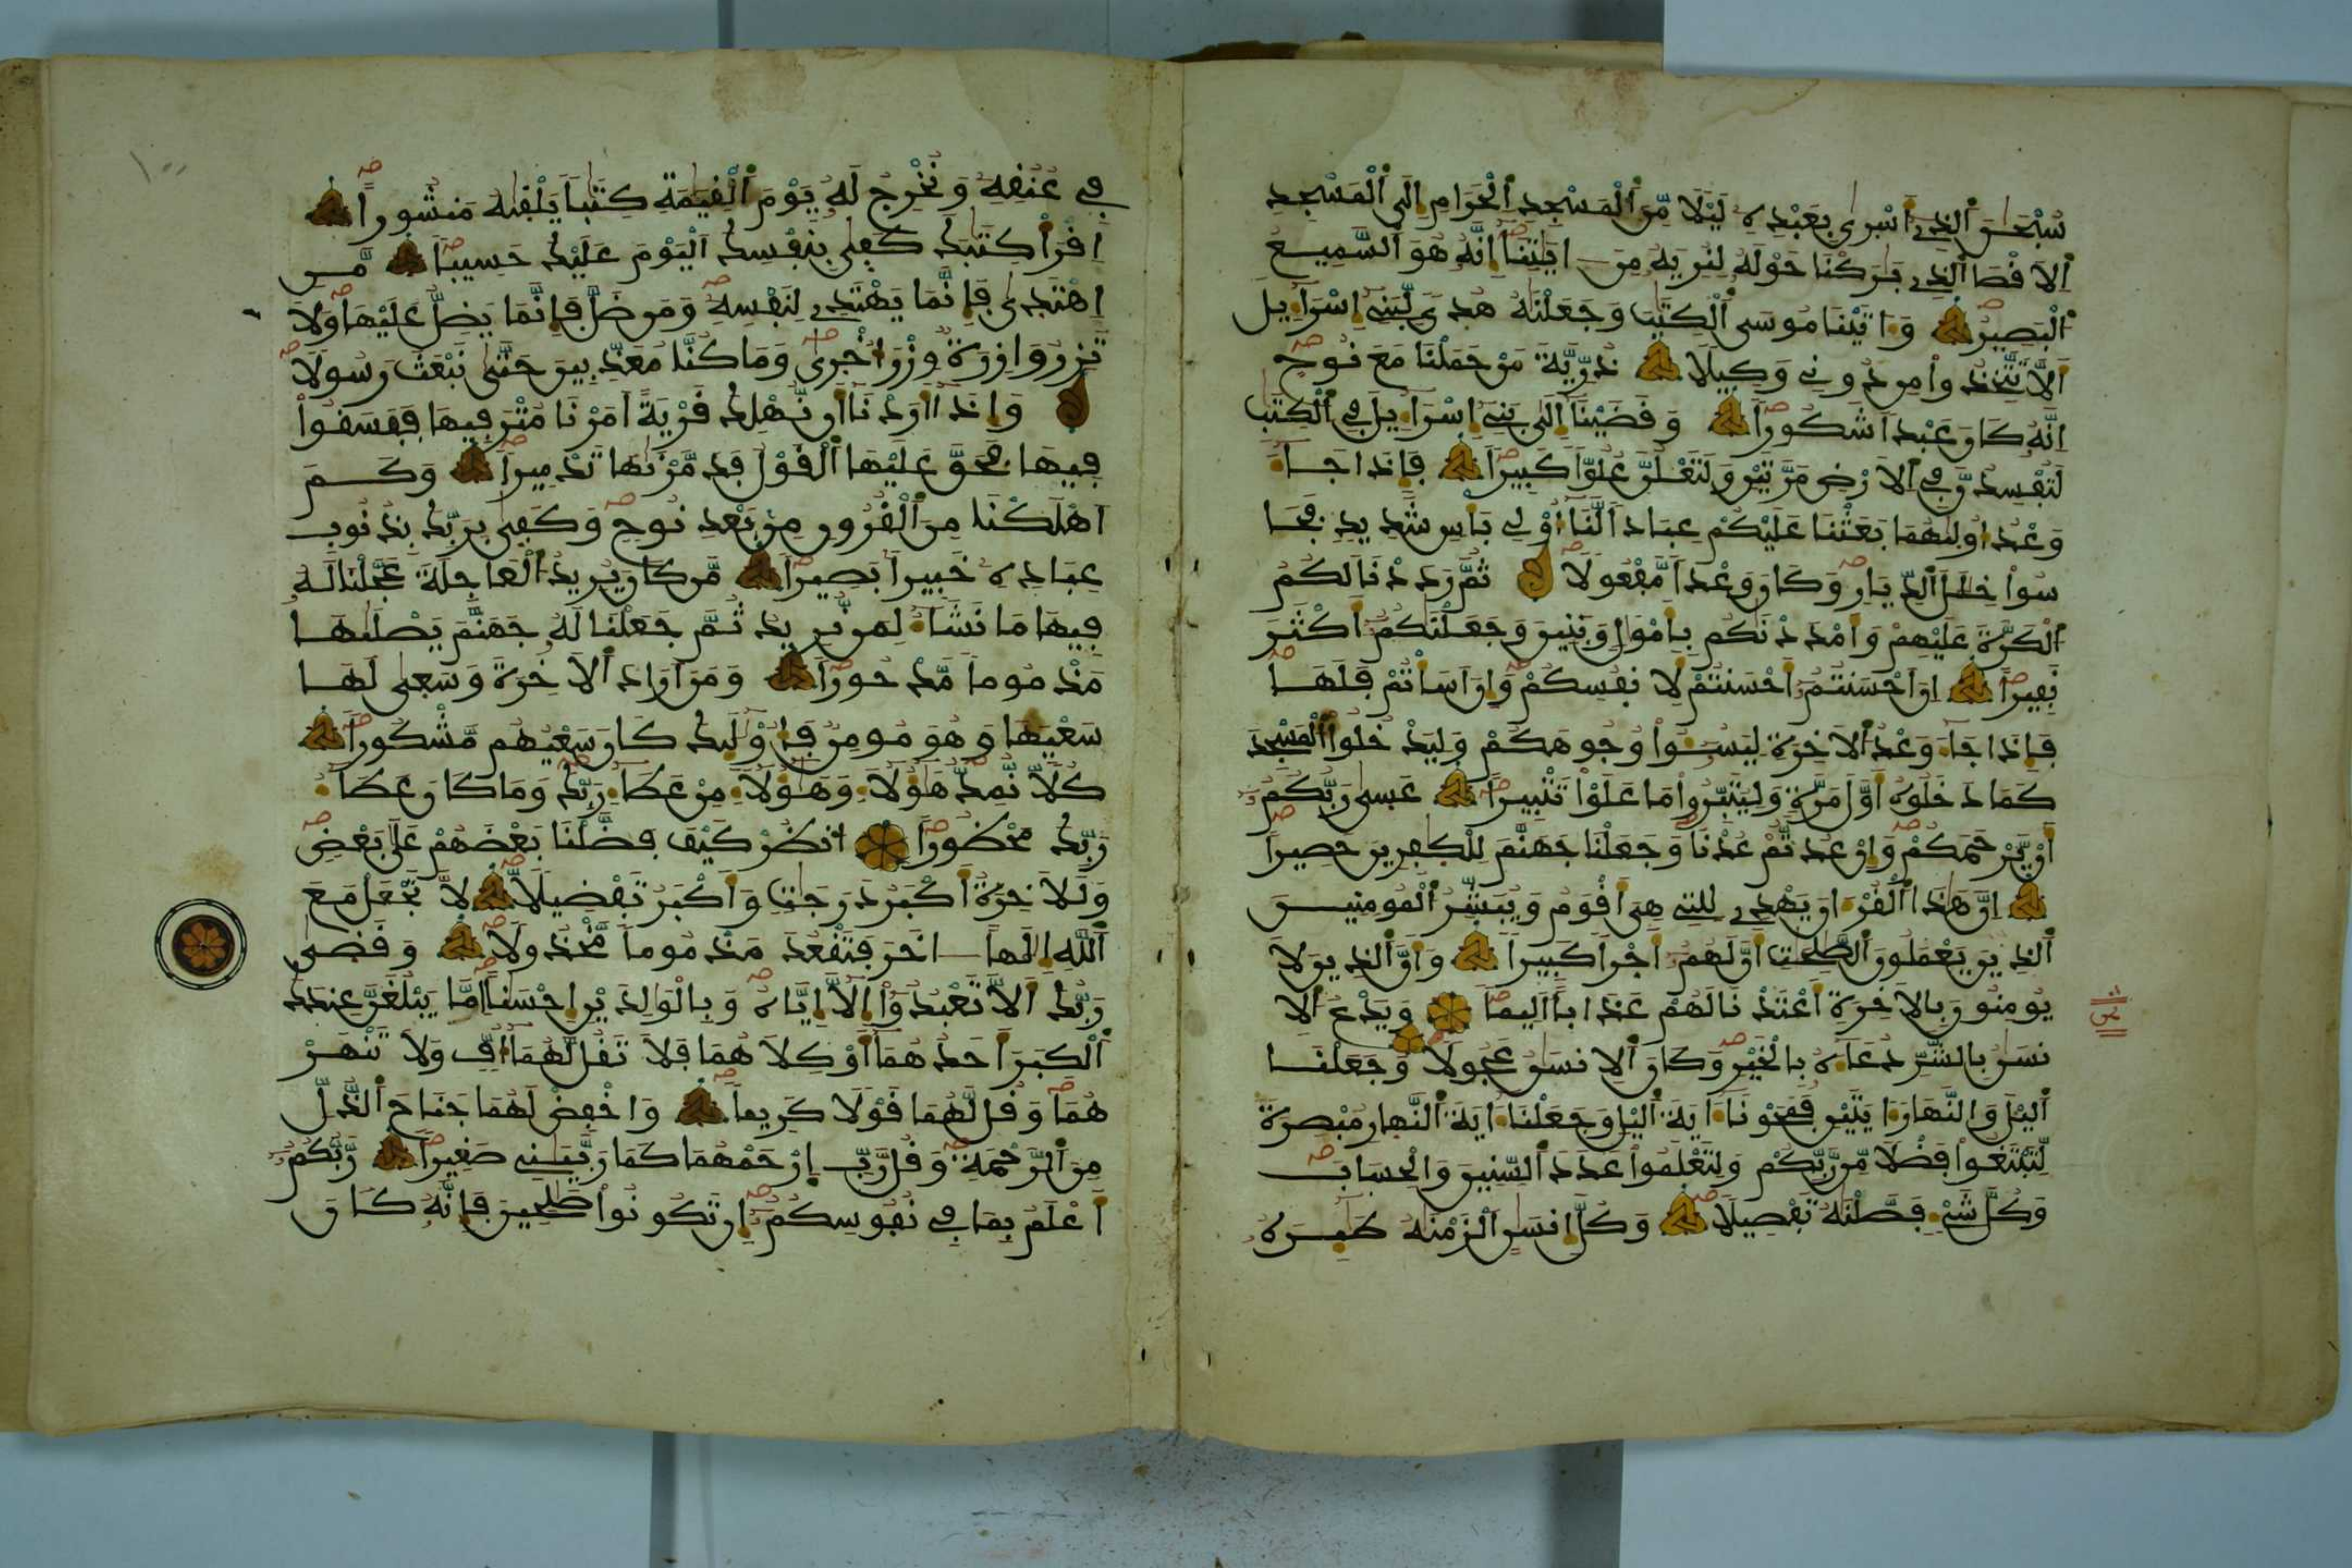 سُبْحَٰنَ ٱلذِےٓ أَسْرىٰ بِعَبْدِهِۦ لَيْلاٗ مِّنَ ٱلْمَسْجِدِ ٱلْحَرَامِ إِلَى ٱلْمَسْجِدِ
ٱلَاقْصَا ٱلذِے بَٰرَكْنَا حَوْلَهُۥ لِنُرِيَهُۥ مِنَ ايَٰتِنَآ إِنَّهُۥ هُوَ ٱلسَّمِيعُ
ٱلْبَصِيرُ وَءَاتَيْنَا مُوسَى ٱلْكِتَٰبَ وَجَعَلْنَٰهُ هُدىٗ لِّبَنِےٓ إِسْرَآءِيلَ
أَلَّا تَتَّخِذُواْ مِن دُونِے وَكِيلاٗ ذُرِّيَّةَ مَنْ حَمَلْنَا مَعَ نُوحٍ
اِنَّهُۥ كَانَ عَبْداٗ شَكُوراٗ وَقَضَيْنَآ إِلَىٰ بَنِےٓ إِسْرَآءِيلَ فِے ٱلْكِتَٰبِ
لَتُفْسِدُنَّ فِے ٱلَارْضِ مَرَّتَيْنِ وَلَتَعْلُنَّ عُلُوّاٗ كَبِيراٗ فَإِذَا جَآءَ
وَعْدُ أُولَىٰهُمَا بَعَثْنَا عَلَيْكُمْ عِبَاداٗ لَّنَآ أُوْلِے بَأْسٖ شَدِيدٖ فَجَا
سُواْ خِلَٰلَ ٱلدِّيَارِ وَكَانَ وَعْداٗ مَّفْعُولاٗ ثُمَّ رَدَدْنَا لَكُمُ
ٱلْكَرَّةَ عَلَيْهِمْ وَأَمْدَدْنَٰكُم بِأَمْوَٰلٖ وَبَنِينَ وَجَعَلْنَٰكُمُۥٓ أَكْثَرَ
نَفِيراً اِنَ اَحْسَنتُمُۥٓ أَحْسَنتُمْ لِأَنفُسِكُمْ وَإِنَ اَسَأْتُمْ فَلَهَا
فَإِذَا جَآءَ وَعْدُ ٱلَاخِرَةِ لِيَسُـُٔواْ وُجُوهَكُمْ وَلِيَدْخُلُواْ ٱلْمَسْجِدَ
كَمَا دَخَلُوهُ أَوَّلَ مَرَّةٖ وَلِيُتَبِّرُواْ مَا عَلَوْاْ تَتْبِيراً عَسىٰ رَبُّكُمُۥٓ
أَنْ يَّرْحَمَكُمْ وَإِنْ عُدتُّمْ عُدْنَا وَجَعَلْنَا جَهَنَّمَ لِلْكٰفِرِينَ حَصِيراً
اِنَّ هَٰذَا ٱلْقُرْءَانَ يَهْدِے لِلتِے هِىَ أَقْوَمُ وَيُبَشِّرُ ٱلْمُومِنِينَ
ٱلذِينَ يَعْمَلُونَ ٱلصَّٰلِحَٰتِ أَنَّ لَهُمُۥٓ أَجْراٗ كَبِيراٗ وَأَنَّ ٱلذِينَ لَا
يُومِنُونَ بِالَاخِرَةِ أَعْتَدْنَا لَهُمْ عَذَاباً اَلِيماٗ وَيَدْعُ ٱلِا
نسَٰنُ بِالشَّرِّ دُعَآءَهُۥ بِالْخَيْرِ وَكَانَ ٱلِانسَٰنُ عَجُولاٗ وَجَعَلْنَا
ٱليْلَ وَالنَّهَارَ ءَايَتَيْنِ فَمَحَوْنَآ ءَايَةَ ٱليْلِ وَجَعَلْنَآ ءَايَةَ ٱلنَّهارِ مُبْصِرَةٗ
لِّتَبْتَغُواْ فَضْلاٗ مِّن رَّبِّكُمْ وَلِتَعْلَمُواْ عَدَدَ ٱلسِّنِينَ وَالْحِسَابَ
وَكُلَّ شَےْءٖ فَصَّلْنَٰهُ تَفْصِيلاٗ وَكُلَّ إِنسَٰنٍ اَلْزَمْنَٰهُ طَٰٓئِرَهُۥ
فِے عُنُقِهِۦ وَنُخْرِجُ لَهُۥ يَوْمَ ٱلْقِيَٰمَةِ كِتَٰباٗ يَلْقَىٰهُ مَنشُوراً
اِقْرَأْ كِتَٰبَكَ كَفىٰ بِنَفْسِكَ ٱلْيَوْمَ عَلَيْكَ حَسِيباٗ مَّنِ
اِهْتَدىٰ فَإِنَّمَا يَهْتَدِے لِنَفْسِهِۦ وَمَن ضَلَّ فَإِنَّمَا يَضِلُّ عَلَيْهَا وَلَا
تَزِرُ وَازِرَةٞ وِزْرَ أُخْرىٰ وَمَا كُنَّا مُعَذِّبِينَ حَتَّىٰ نَبْعَثَ رَسُولاٗ
وَإِذَآ أَرَدْنَآ أَن نُّهْلِكَ قَرْيَةً اَمَرْنَا مُتْرَفِيهَا فَفَسَقُواْ
فِيهَا فَحَقَّ عَلَيْهَا ٱلْقَوْلُ فَدَمَّرْنَٰهَا تَدْمِيراٗ وَكَمَ
اَهْلَكْنَا مِنَ ٱلْقُرُونِ مِنۢ بَعْدِ نُوحٖ وَكَفىٰ بِرَبِّكَ بِذُنُوبِ
عِبَادِهِۦ خَبِيراٗ بَصِيراٗ مَّن كَانَ يُرِيدُ ٱلْعَاجِلَةَ عَجَّلْنَا لَهُۥ
فِيهَا مَا نَشَآءُ لِمَن نُّرِيدُ ثُمَّ جَعَلْنَا لَهُۥ جَهَنَّمَ يَصْلَىٰهَا
مَذْمُوماٗ مَّدْحُوراٗ وَمَنَ اَرَادَ ٱلَاخِرَةَ وَسَعىٰ لَهَا
سَعْيَهَا وَهُوَ مُومِنٞ فَأُوْلَٰٓئِكَ كَانَ سَعْيُهُم مَّشْكُوراٗ
كُلّاٗ نُّمِدُّ هَٰٓؤُلَآءِ وَهَٰٓؤُلَآءِ مِنْ عَطَآءِ رَبِّكَ وَمَا كَانَ عَطَآءُ
رَبِّكَ مَحْظُوراً اَنظُرْ كَيْفَ فَضَّلْنَا بَعْضَهُمْ عَلَىٰ بَعْضٖ
وَلَلَاخِرَةُ أَكْبَرُ دَرَجَٰتٖ وَأَكْبَرُ تَفْضِيلاٗ لَّا تَجْعَلْ مَعَ
ٱللَّهِ إِلَٰهاً اٰخَرَ فَتَقْعُدَ مَذْمُوماٗ مَّخْذُولاٗ وَقَضىٰ
رَبُّكَ أَلَّا تَعْبُدُوٓاْ إِلَّآ إِيَّاهُ وَبِالْوَٰلِدَيْنِ إِحْسَٰناً اِمَّا يَبْلُغَنَّ عِندَكَ
ٱلْكِبَرَ أَحَدُهُمَآ أَوْ كِلَٰهُمَا فَلَا تَقُل لَّهُمَآ أُفّٖ وَلَا تَنْهَرْ
هُمَا وَقُل لَّهُمَا قَوْلاٗ كَرِيماٗ وَاخْفِضْ لَهُمَا جَنَاحَ ٱلذُّلِّ
مِنَ ٱلرَّحْمَةِ وَقُل رَّبِّ اِرْحَمْهُمَا كَمَا رَبَّيَٰنِے صَغِيراٗ رَّبُّكُمُۥٓ
أَعْلَمُ بِمَا فِے نُفُوسِكُمُۥٓ إِن تَكُونُواْ صَٰلِحِينَ فَإِنَّهُۥ كَانَ